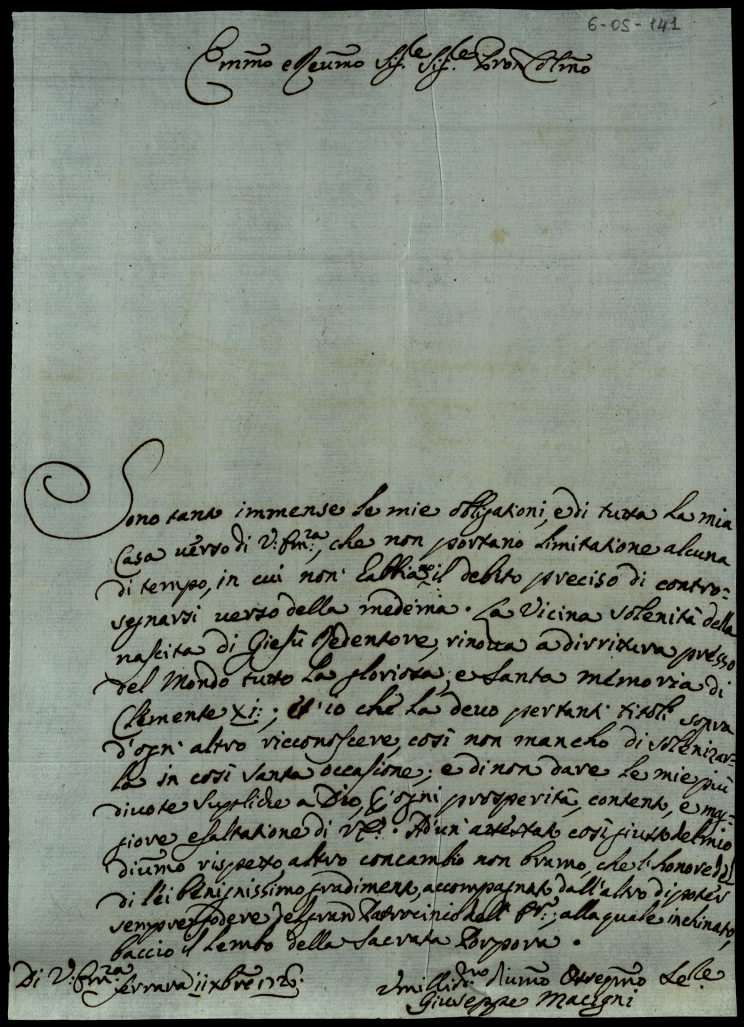 6-05-141
Emmo e Reumo Sig.le Sig.le Pron Colmo
Sono tante immense le mie obligationi, e di tutta la mia
Casa verso di V: Em:za, che non portano limitatione alcuna
di tempo, in cui non habbia il debito preciso di contro=
segnarsi verso della medema. La Vicina solenità della
nascita di Giesù Redentore, rinova a dirritura presso
del Mondo tutto la gloriosa, e Santa memoria di
Clemente XI:; et io che la devo per tanti titoli sopra
d'ogni altro ricconoscere, così non mancho di solenizar=
la in così santa occasione; e di non dare le mie più
divote suppliche a Dio, ogni prosperità, contento, e mag=
giore esaltatione di V.E. Ad un' attestato così giusto del mio
diumo rispetto, altro concambio non bramo, che l'honore del
di lei benignissimo gradimento, accompagnato dall'altro di poter
sempre godere del gran Patrocinio dell' ; alla quale inchinato,
baccio il lembo della Sacrata Porpora.
Di V: Em:za
Ferrara 11 Xbre
Umilliss.mo diumo Ossegmo
Giuseppe Macigni